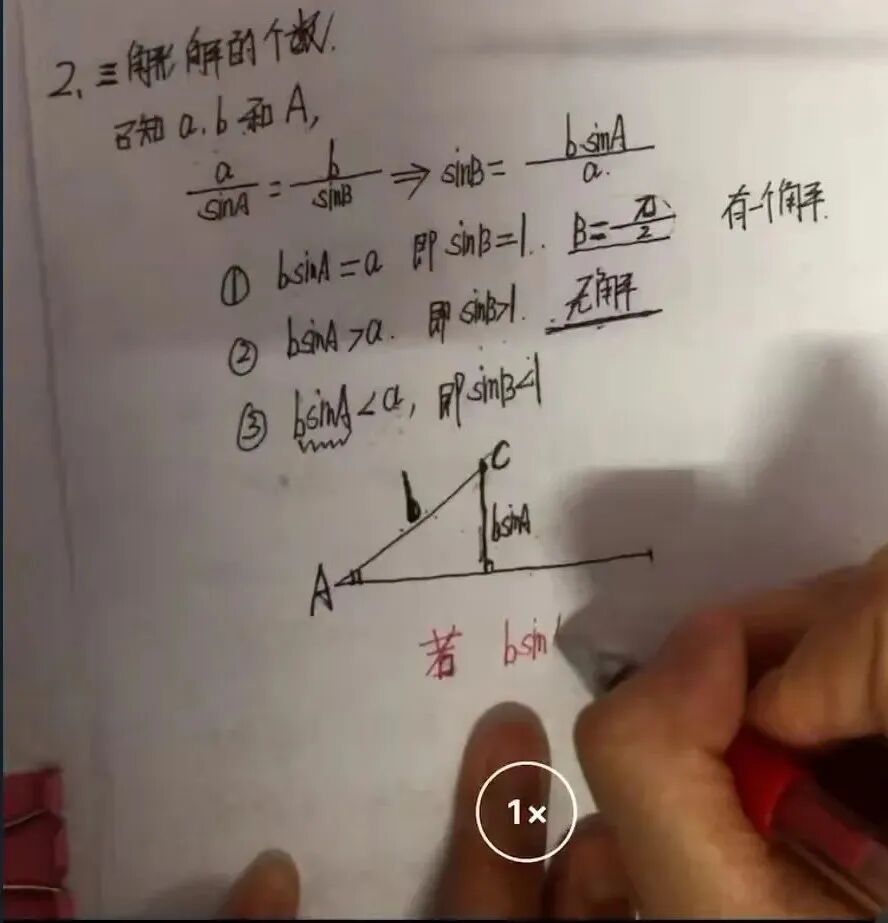 2、三角形解的个数.
已知 a.b 和 A,
a/sinA = b/sinB ⇒ sinB = b·sinA/a.
① bsinA = a 即 sinB=1. B=π/2 有一个解.
② bsinA > a. 即 sinB>1. 无解
③ bsinA < a, 即 sinB<1
C
b
bsinA
A
若 bsin
1×